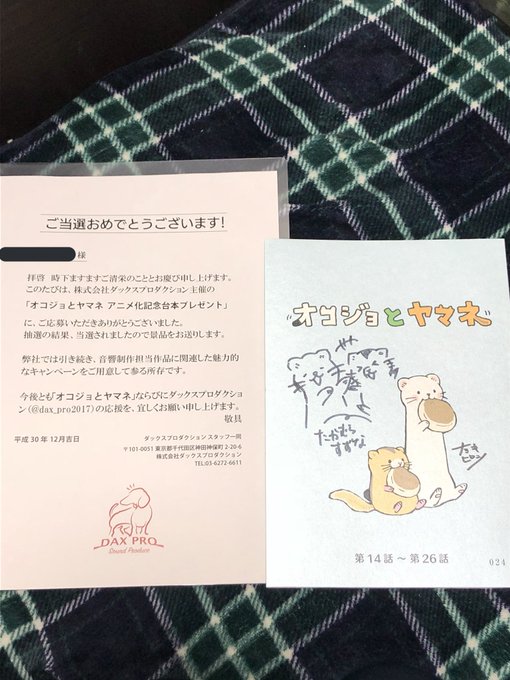 ご当選おめでとうございます!
様
拝啓 時下ますますご清栄のこととお慶び申し上げます。
このたびは、株式会社ダックスプロダクション主催の
「オコジョとヤマネ アニメ化記念台本プレゼント」
に、ご応募いただきありがとうございました。
抽選の結果、当選されましたので景品をお送りします。
弊社では引き続き、音響制作担当作品に関連した魅力的
なキャンペーンをご用意して参る所存です。
今後とも「オコジョとヤマネ」ならびにダックスプロダクショ
ン(@dax_pro2017)の応援を、宜しくお願い申し上げます。
敬具
平成30年12月吉日
ダックスプロダクション スタッフ一同
〒101-0051 東京都千代田区神田神保町2-20-6
株式会社ダックスプロダクション
TEL:03-6272-6611
DAX PRO
Sound Produce
オコジョとヤマネ
たかむら
すずな
第14話~第26話
024